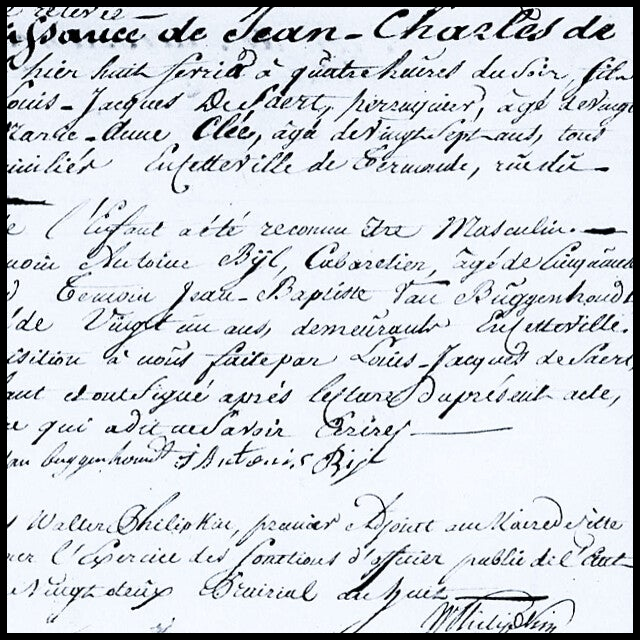 issance de Jean-Charles de
hier huit ferrial à quatre heures du soir, fils
Louis-Jacques De Saert, perruquier, âgé de vingt
Marie-Anne Clée, âgé de vingt Sept ans, tous
micilier En Cetteville de Termonde, rue dit
e l'Enfant a été reconnu Etre Masculin.
moin Antoine Bÿl, Cabaretier, âgé de Cinquante
Temoin Jean-Baptiste Van Buggenhoudt
de Vingt un ans, demeurant En Cetteville.
isition à nous faite par Louis-Jacques de Saert,
ant et ont Signé après lecture du présent acte,
e qui a dit ne Savoir Ecrire
Van buggenhoudt Antonis Bijl
Walter Philipkin, premier Adjoint au Maire de Ville
l'Exercice des fonctions d'officier public de l'Etat
Vingt deux Prairial an huit